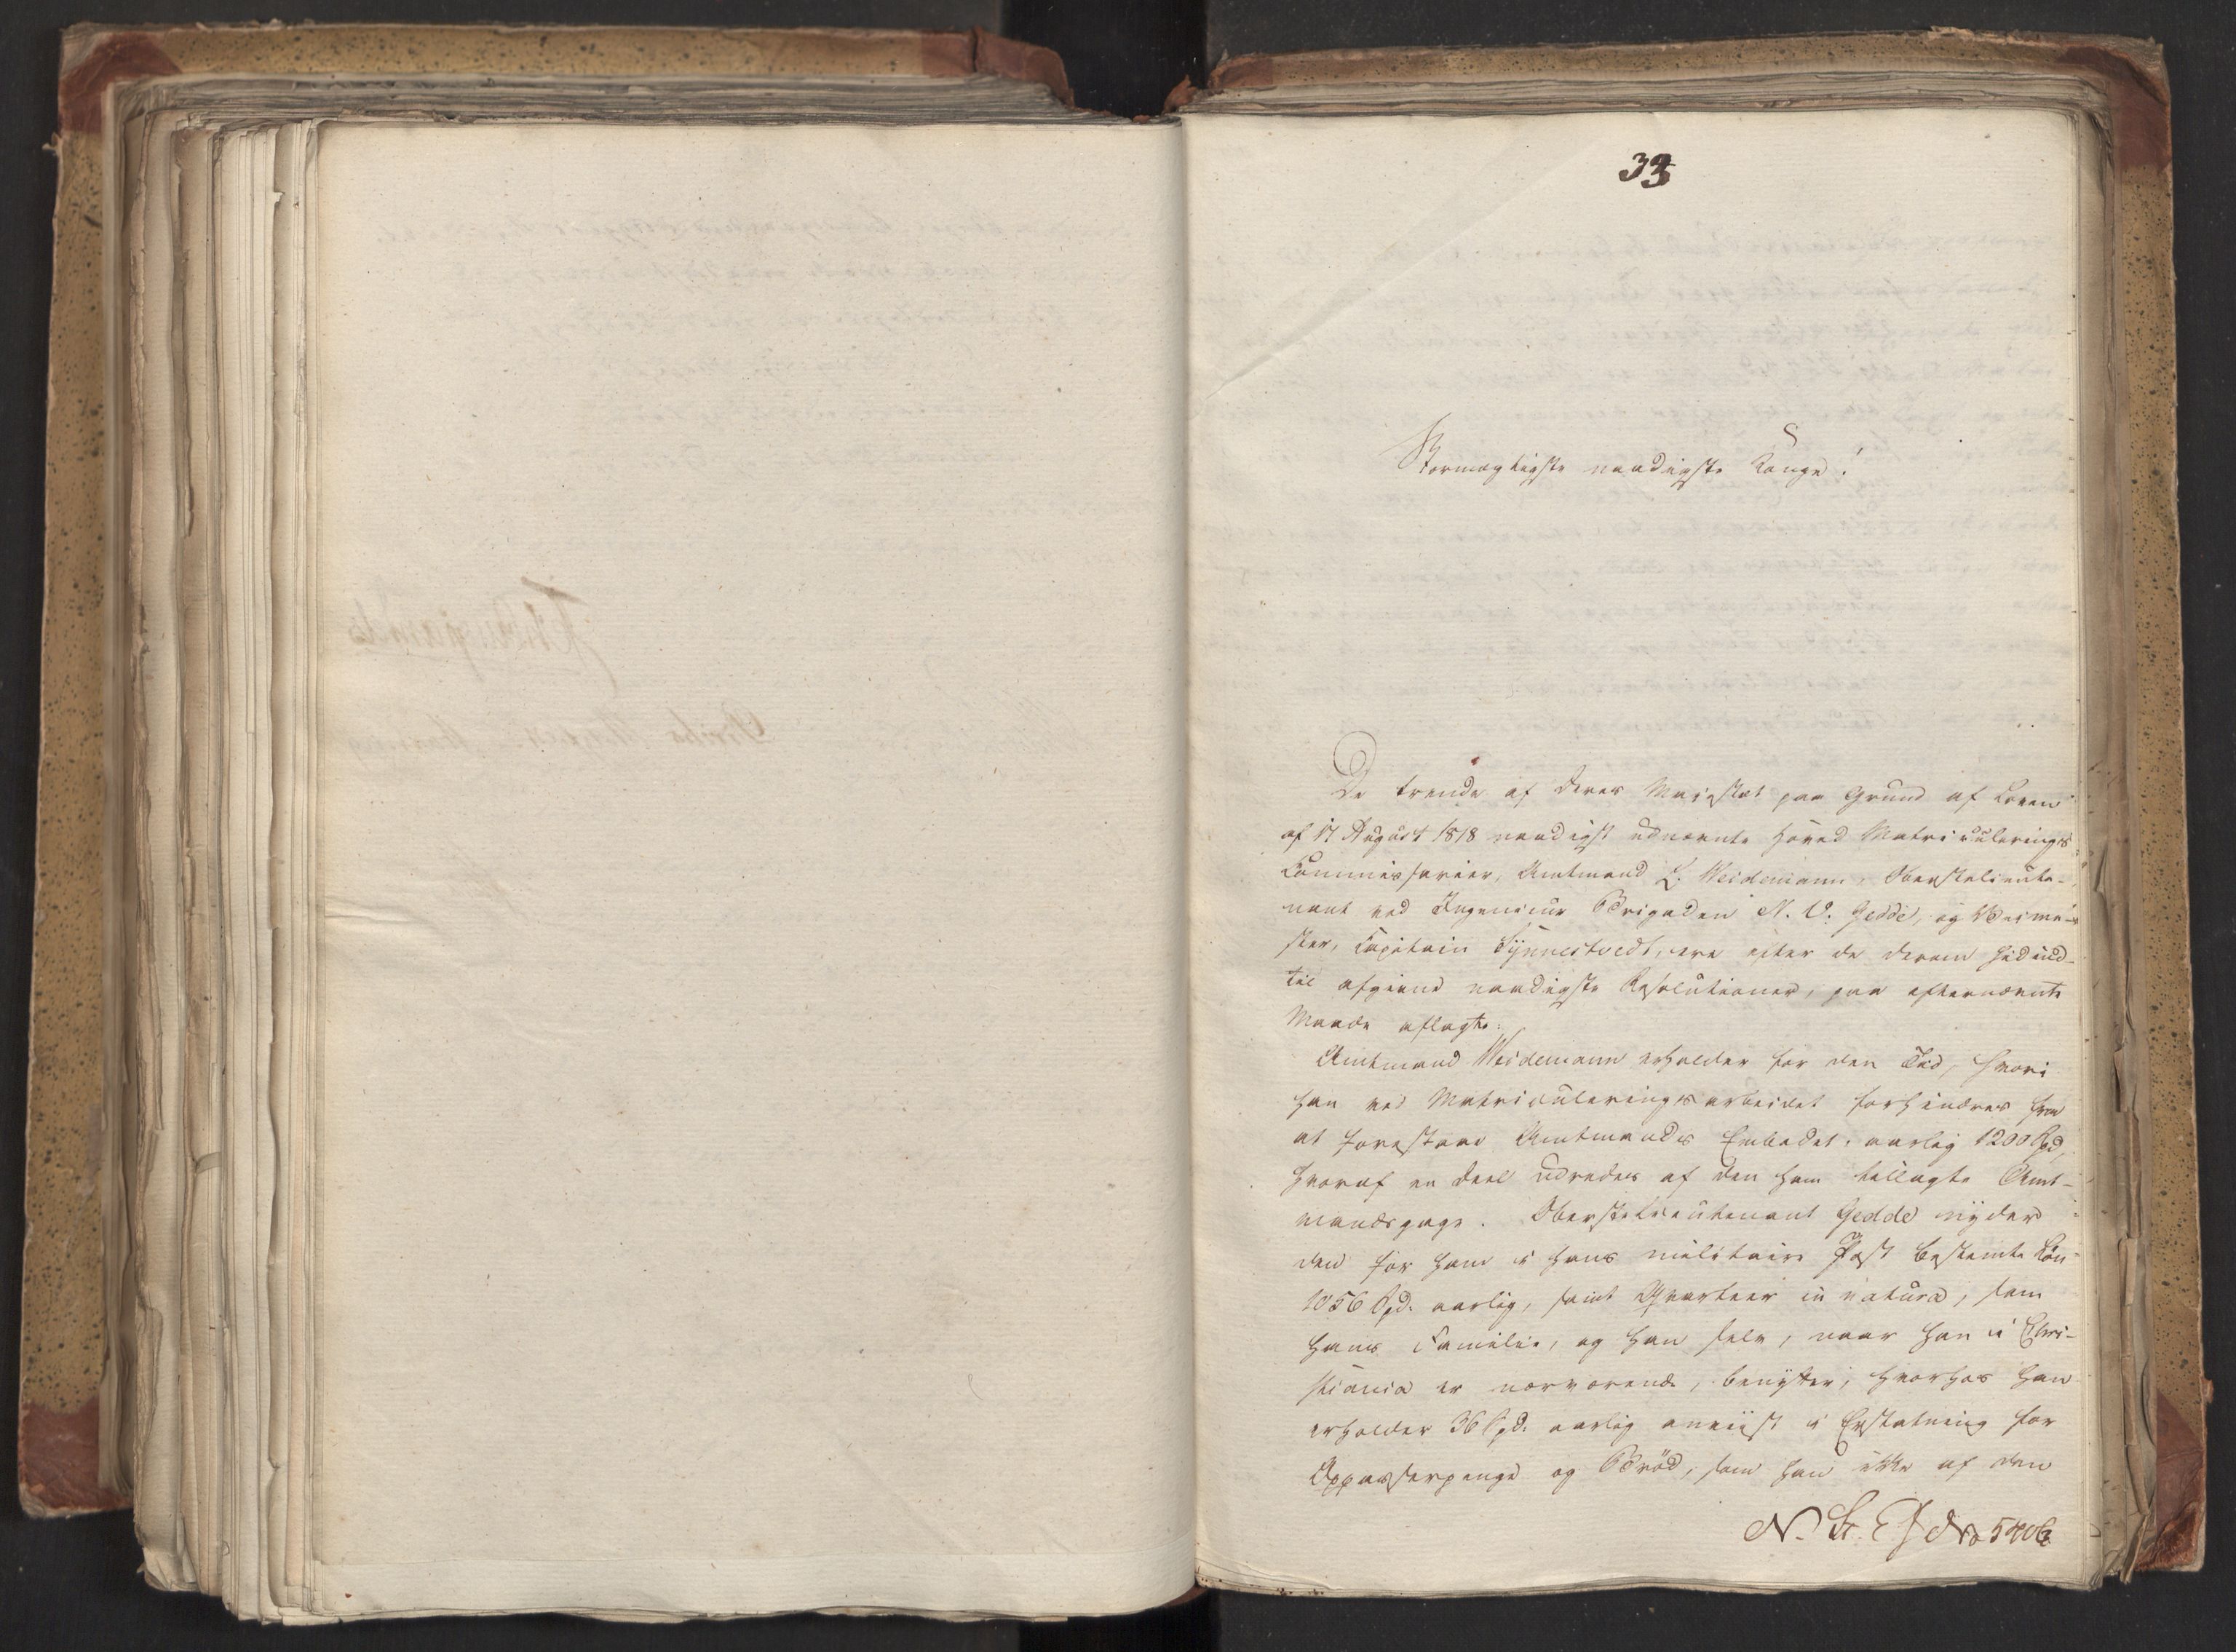 33
Stormægtigste naadigste Konge!
De trende af Deres Majestæt paa Grund af Loven
af 17 August 1818 naadigst udnævnte Hoved Matriculerings
Commissairer, Amtmand L. Weidemann, Oberstelieute-
nant ved Ingenieur Brigaden N. V. Gedde, og Veimes-
ster, Capitain Synnestvedt, ere efter de derom hidind-
til afgivne naadigste Resolutioner, paa efternævnte
Maade aflagte:
Amtmand Weidemann erholder for den Tid, hvori
han ved Matriculeringsarbeidet forhindres fra
at forestaae Amtmands Embedet, aarlig 1200 Spd,
hvoraf en Deel udredes af den ham tillagte Amt-
mandsgage. Oberstelieutenant Gedde nyder
den for ham i hans militaire Post bestemte Løn
1056 Spd. aarlig, samt Qvarteer in natura, som
hans Familie, og han selv, naar han i Chri-
stiania er nærværende, benytter; hvorhos han
erholder 36 Spd. aarlig anviist i Erstatning for
Oppasserpenge og Brød, som han ikke af den
N. St. E. No 5406